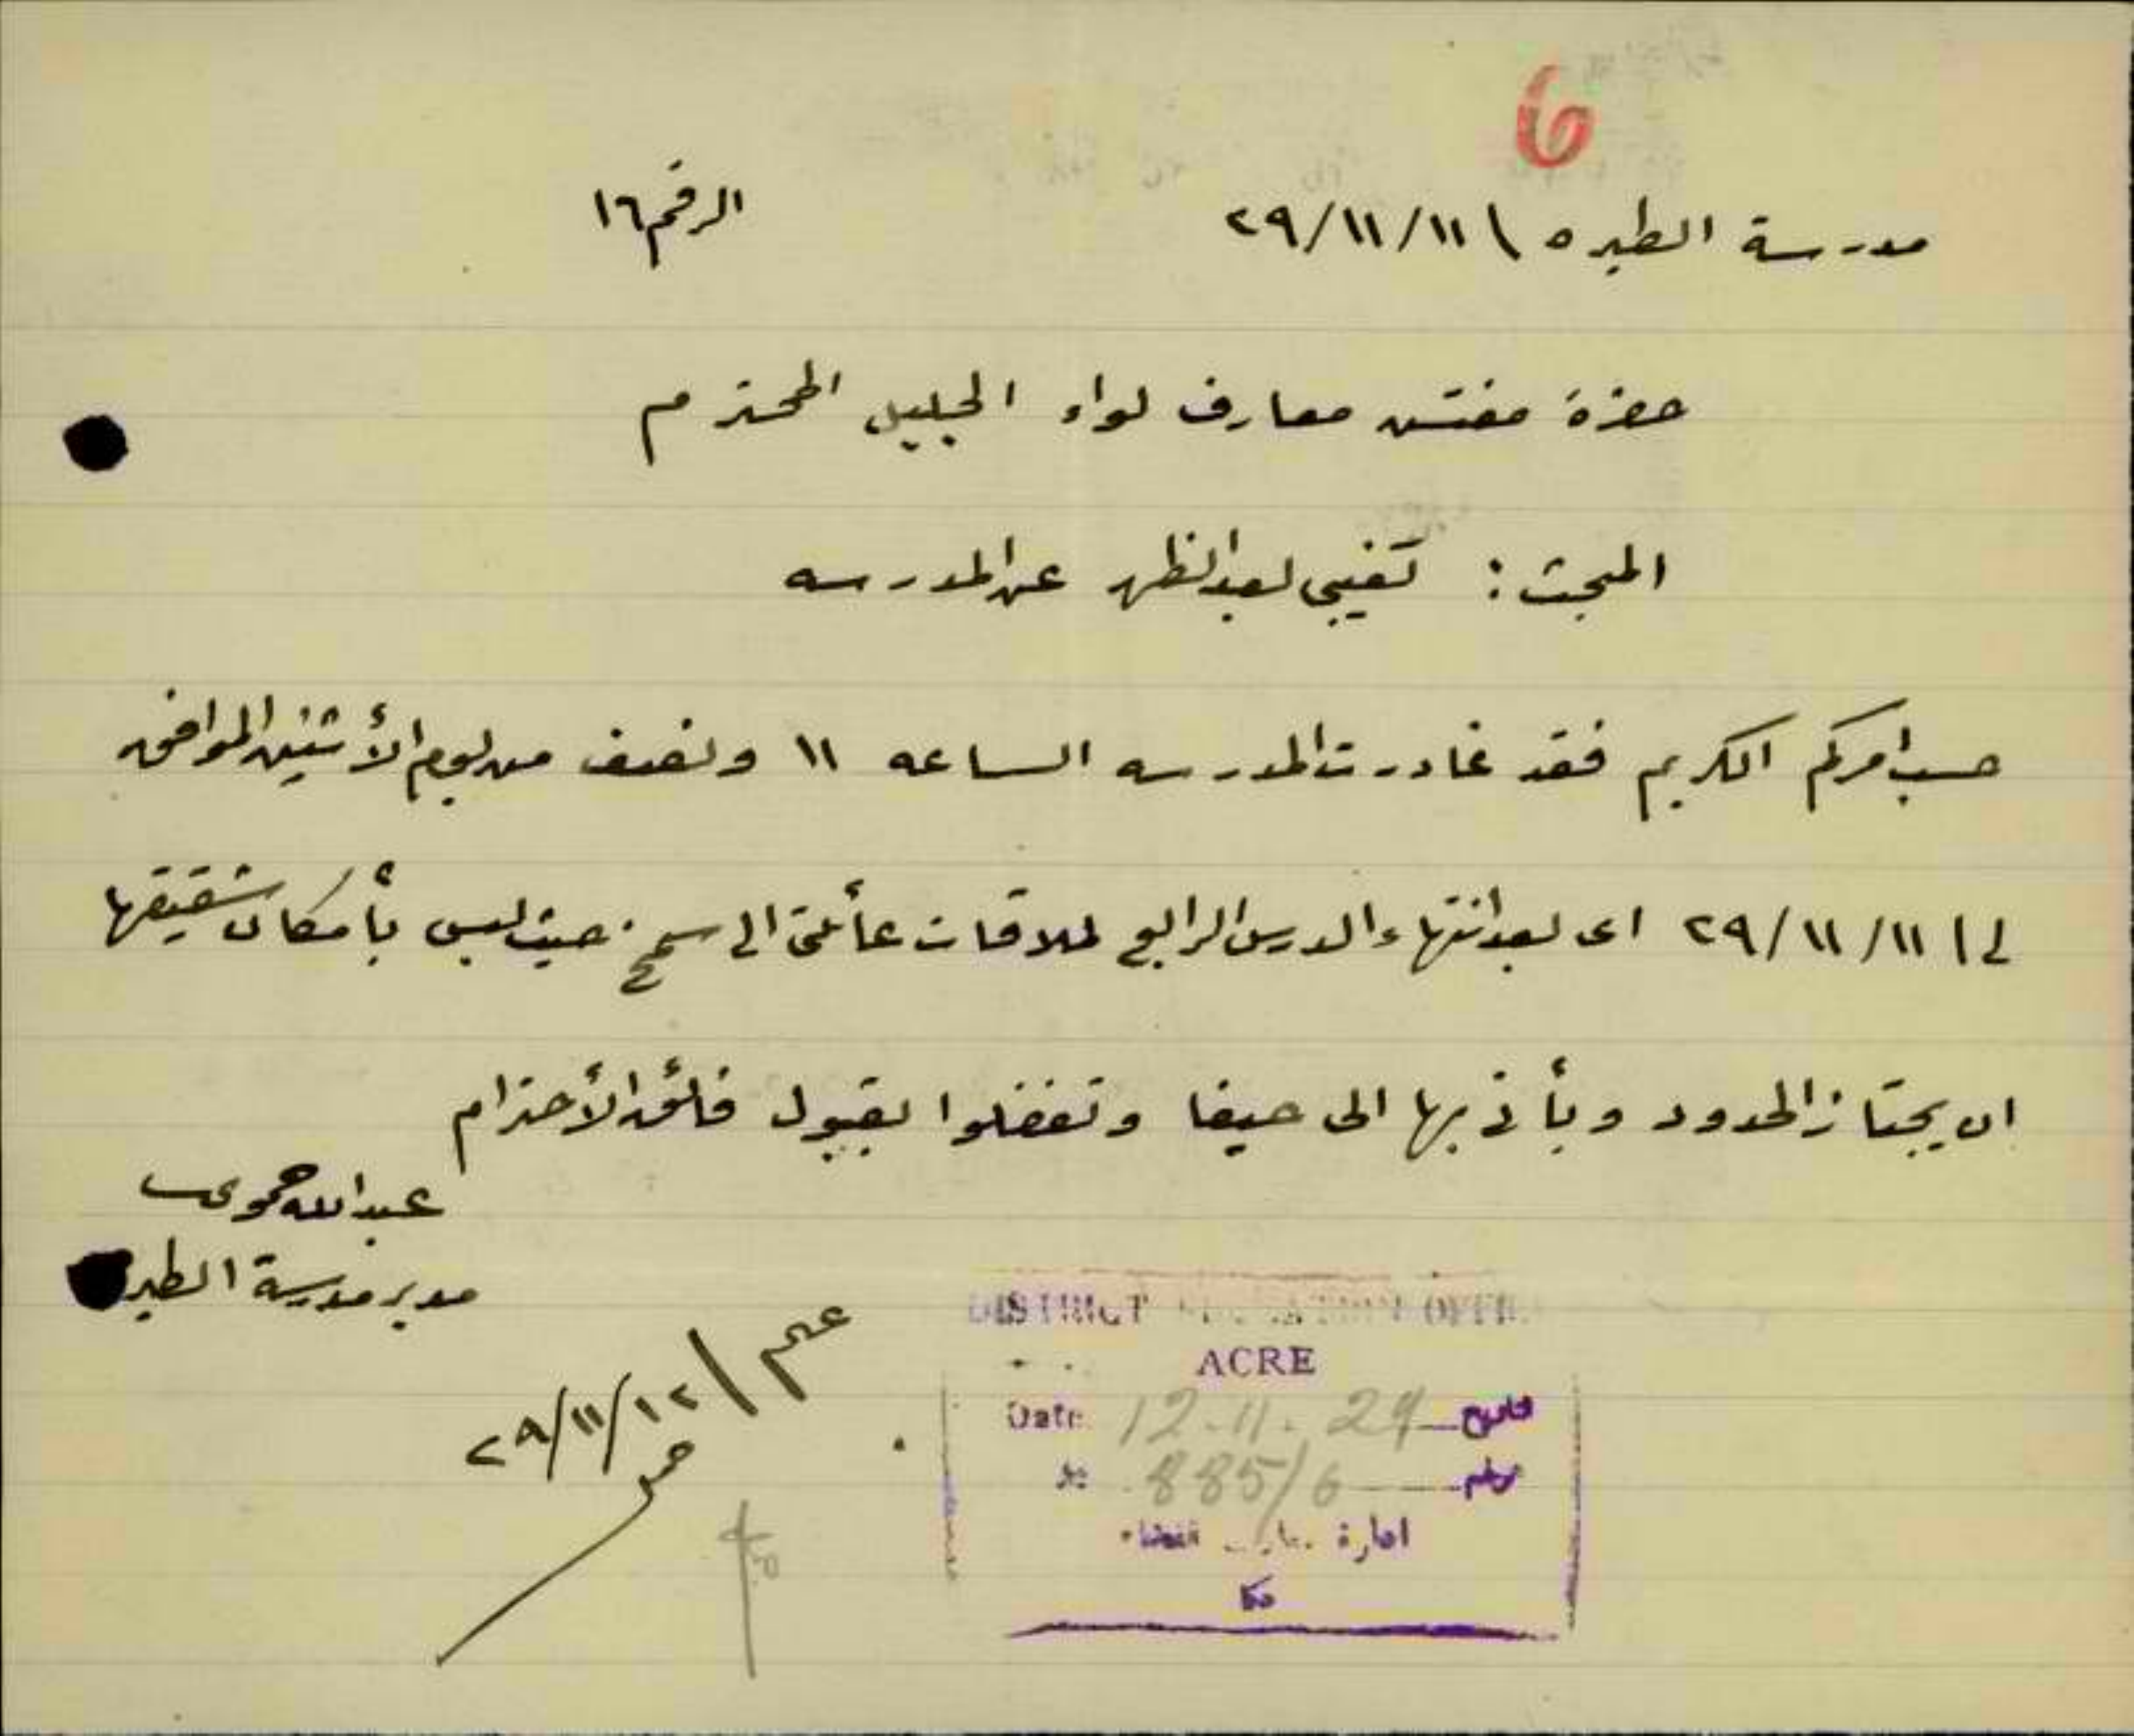 6
مدرسة الطيره \ ١١/١١/٢٩
الرقم ١٦
حضرة مفتش معارف لواء الجليل المحترم
المبحث : تغيبي بعد الظهر عن المدرسه
حسب امركم الكريم فقد غادرت المدرسه الساعه ١١ ونصف من يوم الأثنين الموافق
لـ \ ١١/١١/٢٩ اى بعد انتهاء الدرس الرابع لملاقات عائلتى الى سمخ. حيث ليس بأمكان شقيقها
ان يجتاز الحدود ويأتي بها الى حيفا وتفضلوا بقبول فائق الأحترام
عبدالله
مدير مدرسة الطيره
علم \ ١٢/١١/٢٩
DISTRICT EDUCATION OFFICE
ACRE
Date 12.11.29 تاريخ
No. 885/6 نمره
ادارة معارف قضاء
عكا